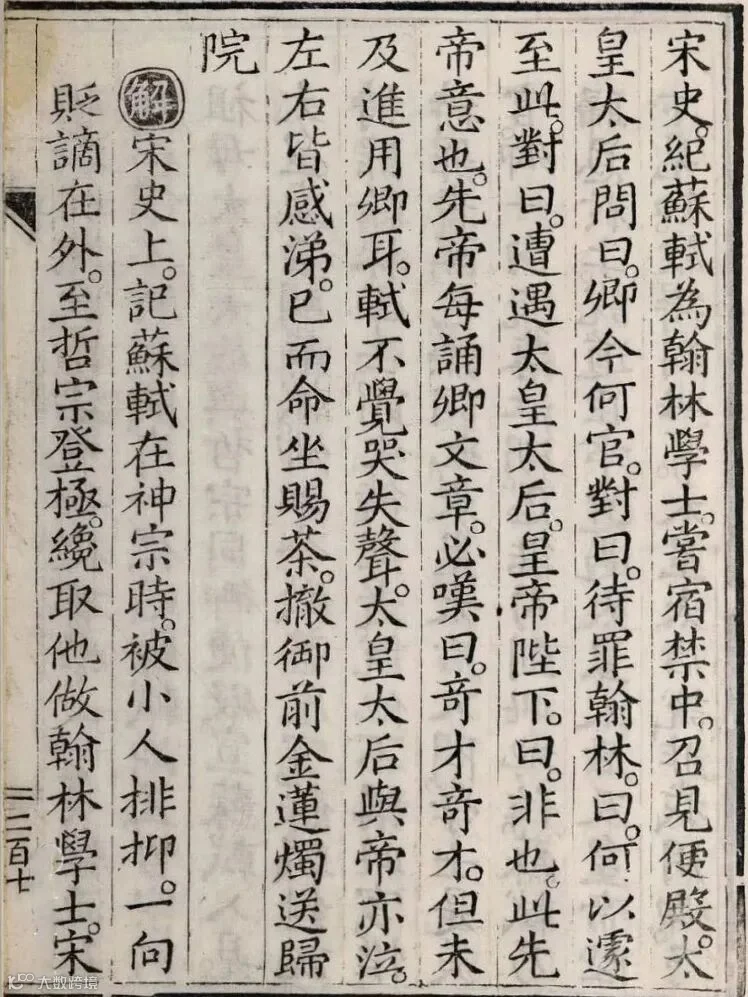 宋史。紀蘇軾為翰林學士。嘗宿禁中。召見便殿。太
皇太后問曰。卿今何官。對曰。待罪翰林。曰。何以遽
至此。對曰。遭遇太皇太后。皇帝陛下。曰。非也。此先
帝意也。先帝每誦卿文章。必嘆曰。奇才奇才。但未
及進用卿耳。軾不覺哭失聲。太皇太后與帝亦泣。
左右皆感涕。已而命坐賜茶。撤御前金蓮燭送歸
院
解 宋史上。記蘇軾在神宗時。被小人排抑。一向
貶謫在外。至哲宗登極。纔取他做翰林學士。宋
二百七
大数跨境